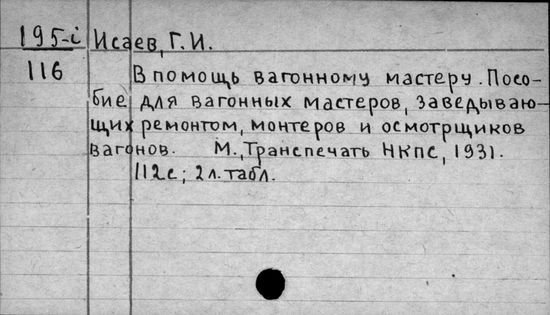 195-i Исаев, Г. И.
116 В помощь вагонному мастеру. Посо-
бие для вагонных мастеров, заведываю-
щих ремонтом, монтеров и осмотрщиков
вагонов. М., Транспечать НКПС, 1931.
112с; 2л. табл.